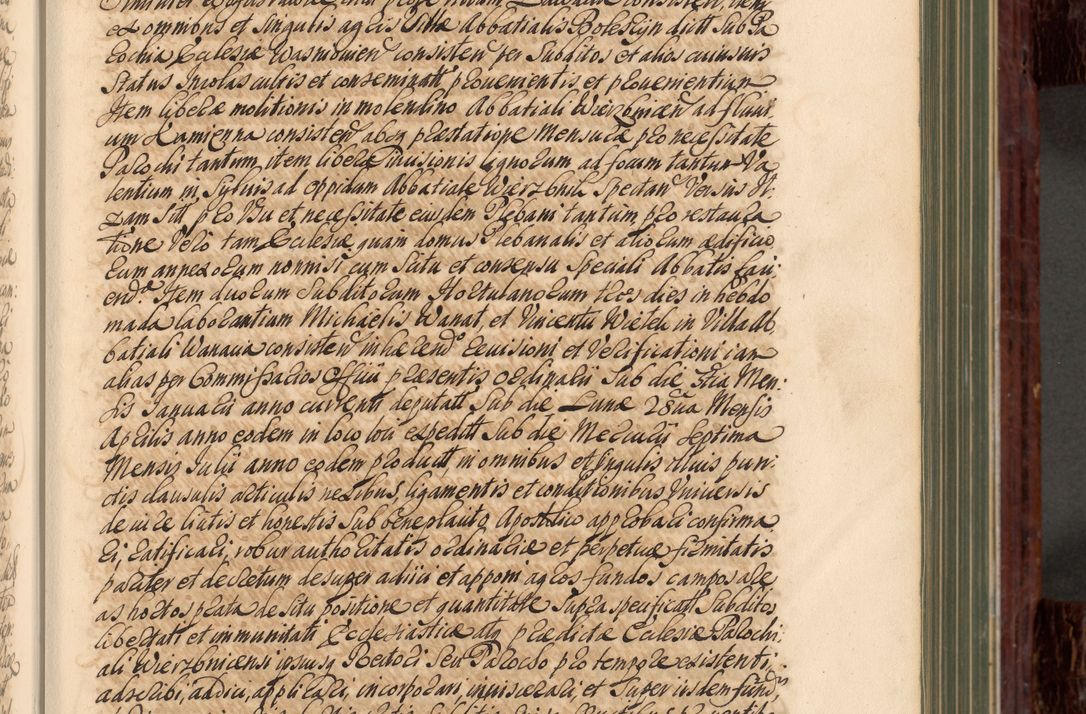 et omnibus et singulis agris Villæ Abbatialis Boleszyn dictt Sub Pa
rochia Ecclesiæ Wasniovien consisten per Subditos et alios cuiusvis
Status Incolas cultis et conseminatt provenientis et provenientiar
Item liberæ molitionis in molendino Abbatiali Wierzbnicen ad fluvi
um Kamienna consisten absq præstatione Mensuræ pro necessitate
Parochi tantum, item liberæ Incisionis lignorum ad focum tantum Va
lentium in Sylvis ad oppidum Abbatiale Wierzbnik Spectan Versus
Sitt pro Usu et necessitate eiusdem Plebani tantum, pro restaura
tione Vero tam Ecclesiæ quam domus Plebanalis et aliorum ædificio
rum annexorum nonnisi cum Scitu et consensu Speciali Abbatis faci
end Item duorum Subditorum Hortulanorum tres dies in hebdo
mada laborantium Michaelis Wanat, et Vincentii Wietek in Villa Ab
batiali Wanacia consisten inhærend revisioni et Verificationi iam
alias per Commissarios Officii præsentis Ordinarii Sub die 3tia Men:
sis Januarii anno currenti deputatt Sub die Lunæ 28va Mensis
Aprilis anno eodem in loco loci expeditt Sub die Mercurii Septima
Mensis Julii anno eodem productt in omnibus et Singulis illius pun:
ctis clausulis articulis nexibus, ligamentis et conditionibus Universis
de iure licitis et honestis Sub beneplacito Apostolico approbari confirma
ri, ratificari, robur authoritatis ordinariæ et perpetuæ firmitatis
pariter et decretum desuper adiici et apponi agros fundos campos are
as hortos prata de Situ positione et quantitate Supra specificatt Subditos
libertati et immunitati Ecclesiasticæ atq prædictæ Ecclesiæ Parochi:
ali Wierzbnicensi ipsiusq Rectori Seu Parocho pro tempore existenti
adscribi, addici, applicari, incorporari, inviscerari, et Super iisdem fundis